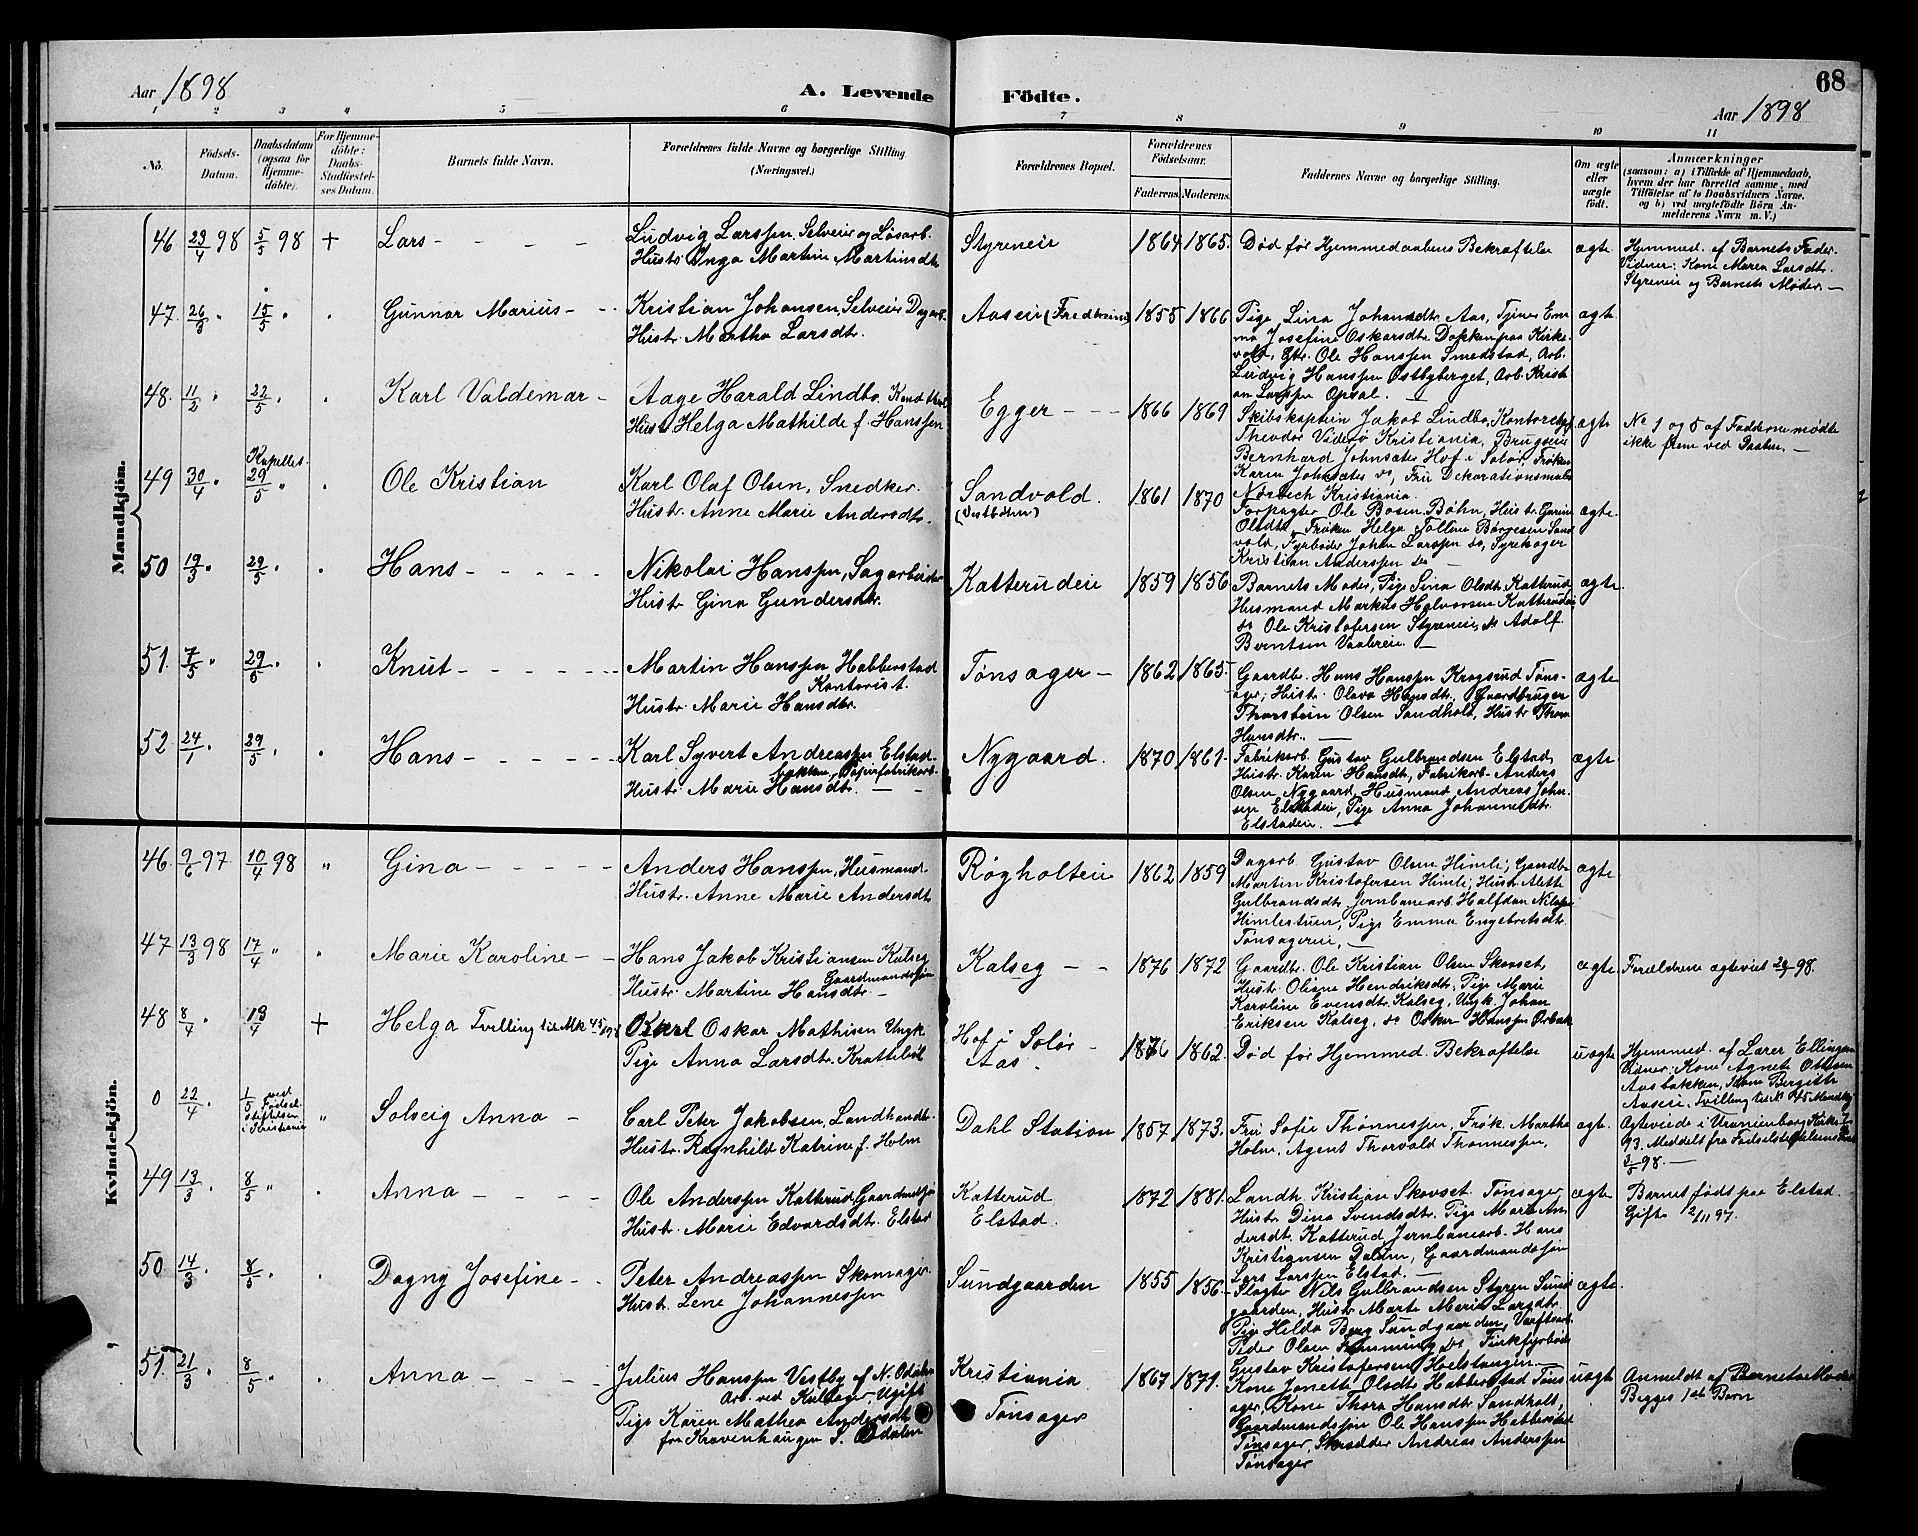 68
Aar 1898
A. Levende Födte.
Aar 1898
1 2 3 4 5 6 7 8 9 10 11
No.
Födsels-Datum.
Daabsdatum (ogsaa for Hjemme-döbte).
For Hjemme-döbte: Daabs-Stadfæstel-ses Datum.
Barnets fulde Navn.
Forældrenes fulde Navne og borgerlige Stilling (Næringsvei.)
Forældrenes Bopæl.
Forældrenes Födselsaar.
Faderens. Moderens.
Faddernes Navne og borgerlige Stilling.
Om ægte eller uægte født.
Anmærkninger
(saasom: a) i Tilfælde af Hjemmedaab,
hvem der har forrettet samme, med
Tilføielse af to Daabsvidners Navne,
og b) ved uægtefødte Börn An-
melderens Navn m. V.)
Mandkjön.
46 23/4 98 5/5 98 + Lars - - - -
Ludvig Larssen, Selveier og Løsarb.
Hustr. Inga Martine Martinsdtr
Styreneie 1864 1865. Død før Hjemmedaabens Bekræftelse ægte.
Hjemmed. af Barnets Fader.
Vidner: Kone Maren Larsdtr.
Styreneie og Barnets Moder. —
47. 26/3 " 15/5 " Gunnar Marius - -
Kristian Johansen, Selveier Dagarb.
Hustr. Martha Larsdtr.
Aaseie (Fredheim) 1855 1866
Pige Lina Johansdtr. Aas, Tjener Em-
ma Josefine Oskarsdtr. Dokken paa Kirke-
vold, Gtr. Ole Hanssen Smedstad, Arb.
Ludvig Hanssen Østbyberget, Arb. Kristi-
an Larssen Opsal. —
ægte
48. 11/2 " 22/5 " Karl Valdemar -
Aage Harald Lindbo,
Hustr. Helga Mathilde f. Hanssen
Egger - - - 1866 1869
Skibskaptein Jakob Lindbo, Kontorchef
Theodor Viderø Kristiania, Brugseier
Bernhard Johnsæter Hof i Solør, Frøken
Karen Johnsæter do, Fru Dekorationsmaler
Nørbech Kristiania.
ægte
No 1 og 5 af Fadderne mødte
ikke frem ved Daaben. —
49 30/4 " Kapellet 29/5 " Ole Kristian
Karl Olaf Olsen, Snedker.
Hustr. Anne Marie Andersdtr.
Sandvold. 1861 1870
Forpagter Ole Bosen Bøhn, Hustr. Gurine
Olsdtr, Frøken Helga Tolline Børgesen Sand
vold, Fyrbøder Johan Larssen do,
Kristian Anderssen do —
ægte.
50 19/3 " 29/5 " Hans - - - - -
Nikolai Hanssen, Sagarbeider
Hustr Gina Gundersdtr.
Katterudeie 1859 1856
Barnets Moder, Pige Sina Olsdtr Katterud
Husmand Markus Halvorsen Katterudeie
do Ole Kristofersen Styreneie, do Adolf
Berntsen Vaalereie. —
ægte
51. 7/5 " 29/5 " Knut - - - - - -
Martin Hanssen Habberstad
Kontorist.
Hustr. Marie Hansdtr.
Tønsager - 1862 1865.
Gaardbr. Hans Hanssen Krogsrud Tøns-
ager, Hustr. Olava Hansdtr, Gaardbruger
Thorstein Olsen Sandhold, Hustr Thora
Hansdtr. —
ægte
52. 24/1 " 29/5 " Hans - - - - - -
Karl Syvert Andreassen Elstad-
bakken, Papirfabrikarb.
Hustr. Marie Hansdtr. — -
Nygaard. 1870 1861.
Fabrikarb. Gustav Gulbrandsen Elstad,
Hustr. Karen Hansdtr, Fabrikarb. Anders
Olsen Nygaard, Husmand Andreas Johan-
sen Elstadeie, Pige Anna Johannesdtr.
Elstadeie. —
ægte
Kvindekjön.
46. 9/6 97 10/4 98 " Gina - - - - -
Anders Hanssen, Husmand.
Hustr. Anne Marie Andersdtr
Røgholteie 1862 1859
Dagarb Gustav Olsen Himle, Gaardbr
Martin Kristofersen Himle, Hustr. Alette
Gulbrandsdtr, Jernbanearb. Halfdan Nilssen
Himlestuen, Pige Emma Engebretsdtr.
Tønsagereie. —
ægte
47 13/3 98 17/4 " Marie Karoline - -
Hans Jakob Kristiansen Kalseg
Gaardmandssøn
Hustr. Martine Hansdtr. -
Kalseg - - 1876 1872
Gaardbr. Ole Kristian Olsen Skovset,
Hustr. Oliane Hendriksdtr, Pige Marie
Karoline Evensdtr. Kalseg, Ungk. Johan
Eriksen Kalseg, do Oskar Hanssen Ørbæk
ægte Forældrene ægteviet 98.
48 8/4 " 19/4 + Helga Tvilling til Mk 45
Karl Oskar Mathisen Ungk
Pige Anna Larsdtr. Kratteböl
Hof i Solør -
Aas. 1876 1862. Død før Hjemmed. Bekræftelse uægte
Hjemmed. af Lærer Ellingsen
Vidner: Kone Agnete Ottesen
Aasbakken, Kone Bergitte
Aaseie. Tvilling til No 45 Mandkj
0 22/4 " 1/5 ved Fødsel-stiftelsen i Kristiania " Solveig Anna -
Carl Peter Jakobsen, Landhandl.
Hustr. Ragnhild Katrine f. Holm
Dahl Station 1857 1873.
Fru Sofie Thønnessen, Frøk. Martha
Holm, Agent Thorvald Thønnessen,
ægt.
Ægteviede i Uranienborg Kirke
93. Meddelt fra Fødselsstiftelsens Præst
3/5 98. —
49 13/3 " 8/5 " Anna - - - -
Ole Anderssen Katterud, Gaardmdsøn
Hustr. Marie Edvardsdtr. Elstad
Katterud
Elstad. 1872 1881.
Landh. Kristian Skovset. Tønsager
Hustr Dina Svendsdtr. Pige Marie An
dersdt. Katterud, Jernbanearb. Hans
Kristiansen Dalen, Gaardmandssøn
Lars Larssen Elstad. —
ægte Barnet født paa Elstad.
Gift 2/11 97.
50. 14/3 " 8/5 " Dagny Josefine - -
Peter Andreassen Skomager.
Hustr. Lene Johannessen
Sundgaarden 1855 1856.
Slagter Nils Gulbrandsen Styren Sund
gaarden, Hustr Marte Marie Larsdtr.
Pige Hilda Berg Sundgaarden, Værftsarb.
Peder Olsen Flemming do
Gustav Kristofersen Hoelstangen
ægte.
51 21/3 " 8/5 " Anna - - - -
Julius Hanssen Vestby af N. Odalen
Arb. ved Kullager, Ugift
Pige Karen Mathea Andersdt
fra Kravenhaugen S. Odalen
Kristiania
Tønsager 1867 1871.
Kone Janette Olsdtr Habberstad Tøns
ager, Kone Thora Hansdtr Sandhold,
Gaardmandssøn Ole Hanssen Habberstad
Tønsager, Skrædder Andreas Anderssen
Tønsager
uægt Anmeldt af Barnets Moder
Begges 1ste Barn